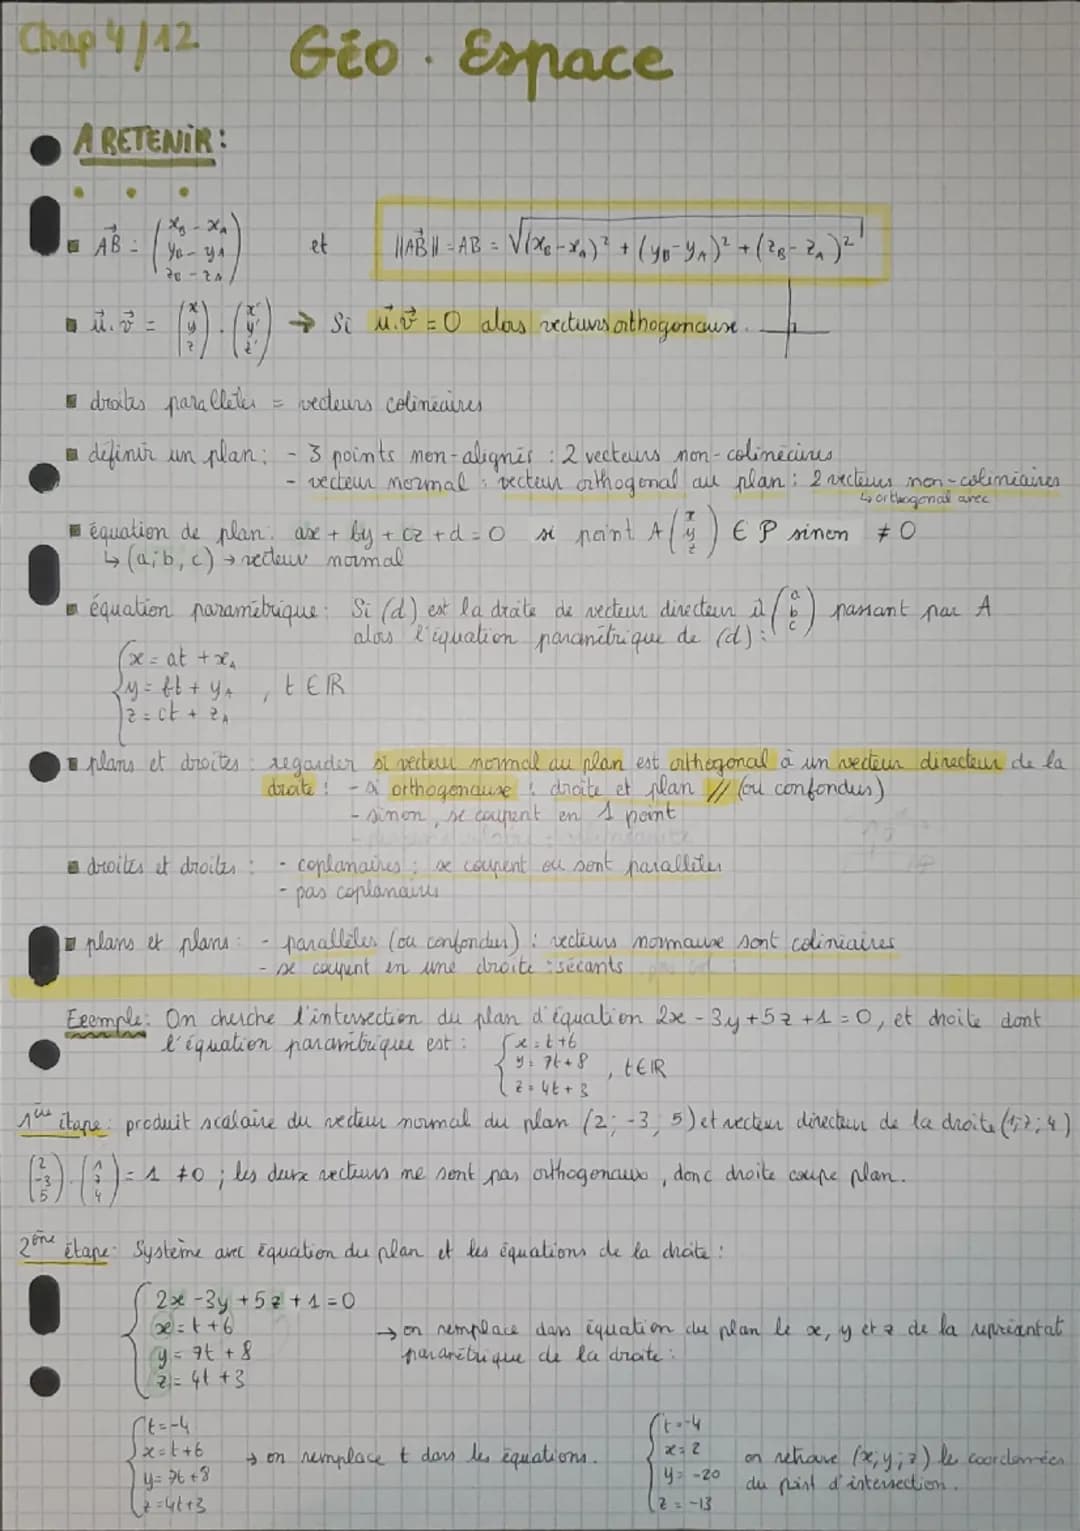 Chap 4/12
Géo. Espace
A RETENIR:
AB⃗ : (x_B - x_A ; y_B - y_A ; z_B - z_A) et ||AB⃗|| = AB = √((x_B-x_A)² + (y_B-y_A)² + (z_B-z_A)²)
u⃗.v⃗ = (x ; y ; z) . (x' ; y' ; z') → Si u⃗.v⃗ = 0 alors vecteurs orthogonaux.
droites parallèles = vecteurs colinéaires
définir un plan: - 3 points non-alignés : 2 vecteurs non-colinéaires
- vecteur normal : vecteur orthogonal au plan : 2 vecteurs non-colinéaires
↳ orthogonal avec
équation de plan: ax + by + cz + d = 0 si point A (x ; y ; z) ∈ P sinon ≠ 0
↳ (a; b, c) → vecteur normal
équation paramétrique: Si (d) est la droite de vecteur directeur u⃗ (a ; b ; c) passant par A
alors l'équation paramétrique de (d) :
{ x = at + x_A
y = bt + y_A , t ∈ ℝ
z = ct + z_A
plans et droites : regarder si vecteur normal au plan est orthogonal à un vecteur directeur de la
droite : - si orthogonaux : droite et plan // (ou confondus)
- sinon, se coupent en 1 point
droites et droites : - coplanaires : se coupent ou sont parallèles
- pas coplanaires
plans et plans : - parallèles (ou confondus) : vecteurs normaux sont colinéaires
- se coupent en une droite : sécants
Exemple: On cherche l'intersection du plan d'équation 2x - 3y + 5z + 1 = 0, et droite dont
l'équation paramétrique est : { x = t+6
y = 7t + 8 , t ∈ ℝ
z = 4t + 3
1ère étape: produit scalaire du vecteur normal du plan (2; -3; 5) et vecteur directeur de la droite (1; 7; 4)
(2 ; -3 ; 5) . (1 ; 7 ; 4) = 1 ≠ 0 ; les deux vecteurs ne sont pas orthogonaux, donc droite coupe plan.
2ème étape: Système avec équation du plan et les équations de la droite :
{ 2x - 3y + 5z + 1 = 0
x = t + 6
→ on remplace dans équation du plan le x, y et z de la représentat
y = 7t + 8
paramétrique de la droite :
z = 4t + 3
{ t = -4
x = t + 6
y = 7t + 8
z = 4t + 3
→ on remplace t dans les équations.
{ t = -4
x = 2
y = -20
z = -13
on retrouve (x; y; z) le coordonnées
du point d'intersection.